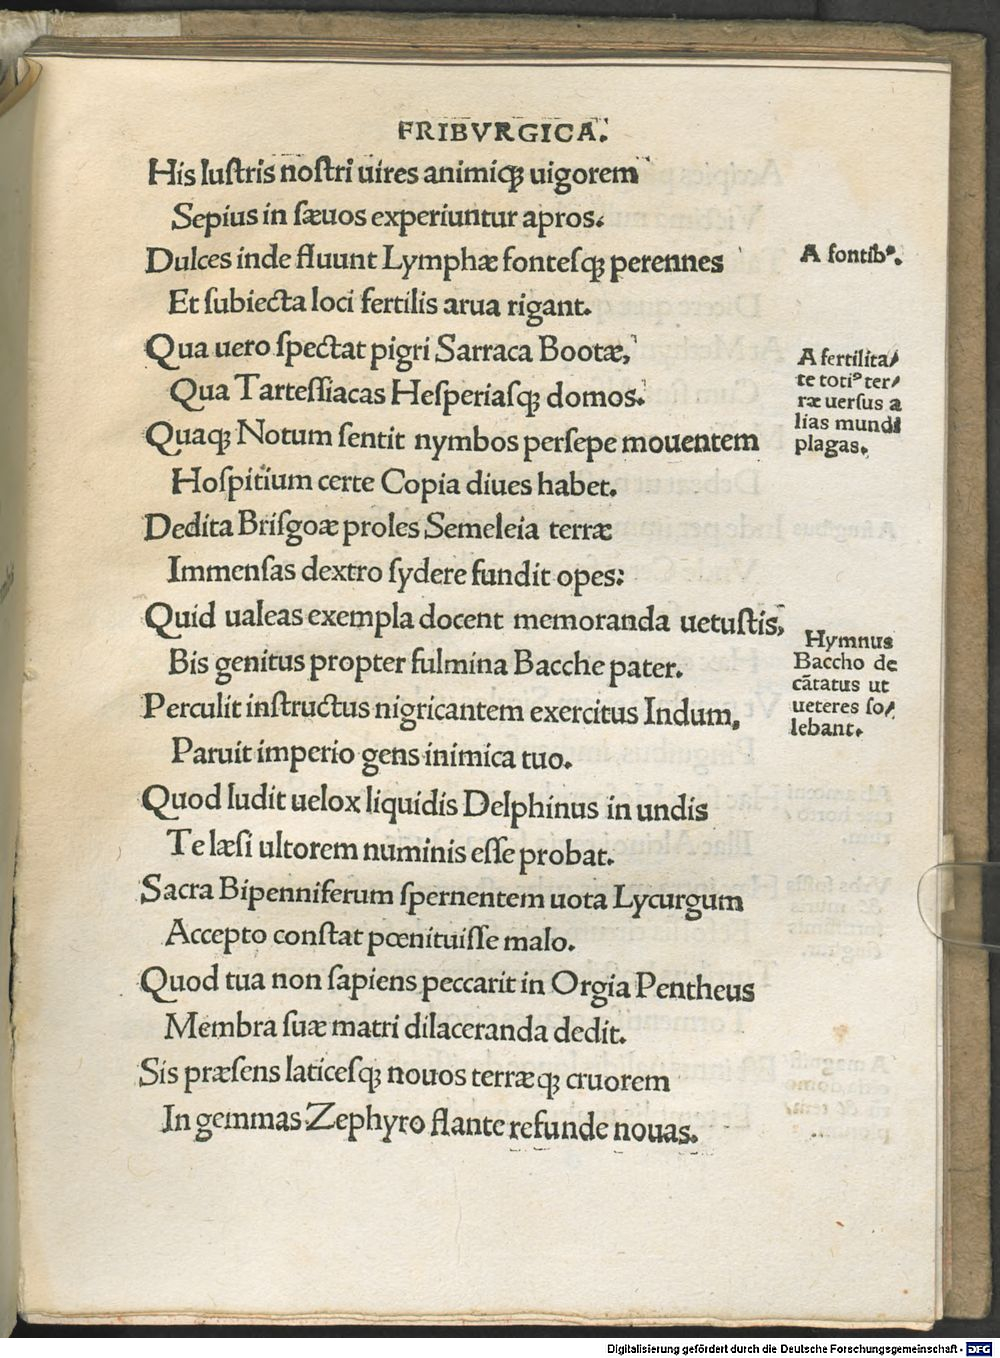 FRIBVRGICA.
His luſtris noſtri uires animiq́ꝫ uigorem
Sepius in ſæuos experiuntur apros.
Dulces inde fluunt Lymphæ fonteſqꝫ perennes
A fontibꝰ.
Et ſubiecta loci fertilis arua rigant.
Qua uero ſpectat pigri Sarraca Bootæ,
Qua Tarteſſiacas Heſperiaſqꝫ domos.
A fertilita/
te totiꝰ ter/
ræ uerſus a
lias mundi
plagas.
Quaqꝫ Notum ſentit nymbos perſepe mouentem
Hoſpitium certe Copia diues habet.
Dedita Briſgoæ proles Semeleia terræ
Immenſas dextro ſydere fundit opes:
Quid ualeas exempla docent memoranda uetuſtis,
Bis genitus propter fulmina Bacche pater.
Hymnus
Baccho de
cãtatus ut
ueteres ſo/
lebant.
Perculit inſtructus nigricantem exercitus Indum,
Paruit imperio gens inimica tuo.
Quod ludit uelox liquidis Delphinus in undis
Te læſi ultorem numinis eſſe probat.
Sacra Bipenniferum ſpernentem uota Lycurgum
Accepto conſtat pœnituiſſe malo.
Quod tua non ſapiens peccarit in Orgia Pentheus
Membra ſuæ matri dilaceranda dedit.
Sis præſens laticeſqꝫ nouos terræqꝫ cruorem
In gemmas Zephyro flante refunde nouas.
Digitalisierung gefördert durch die Deutsche Forschungsgemeinschaft - DFG